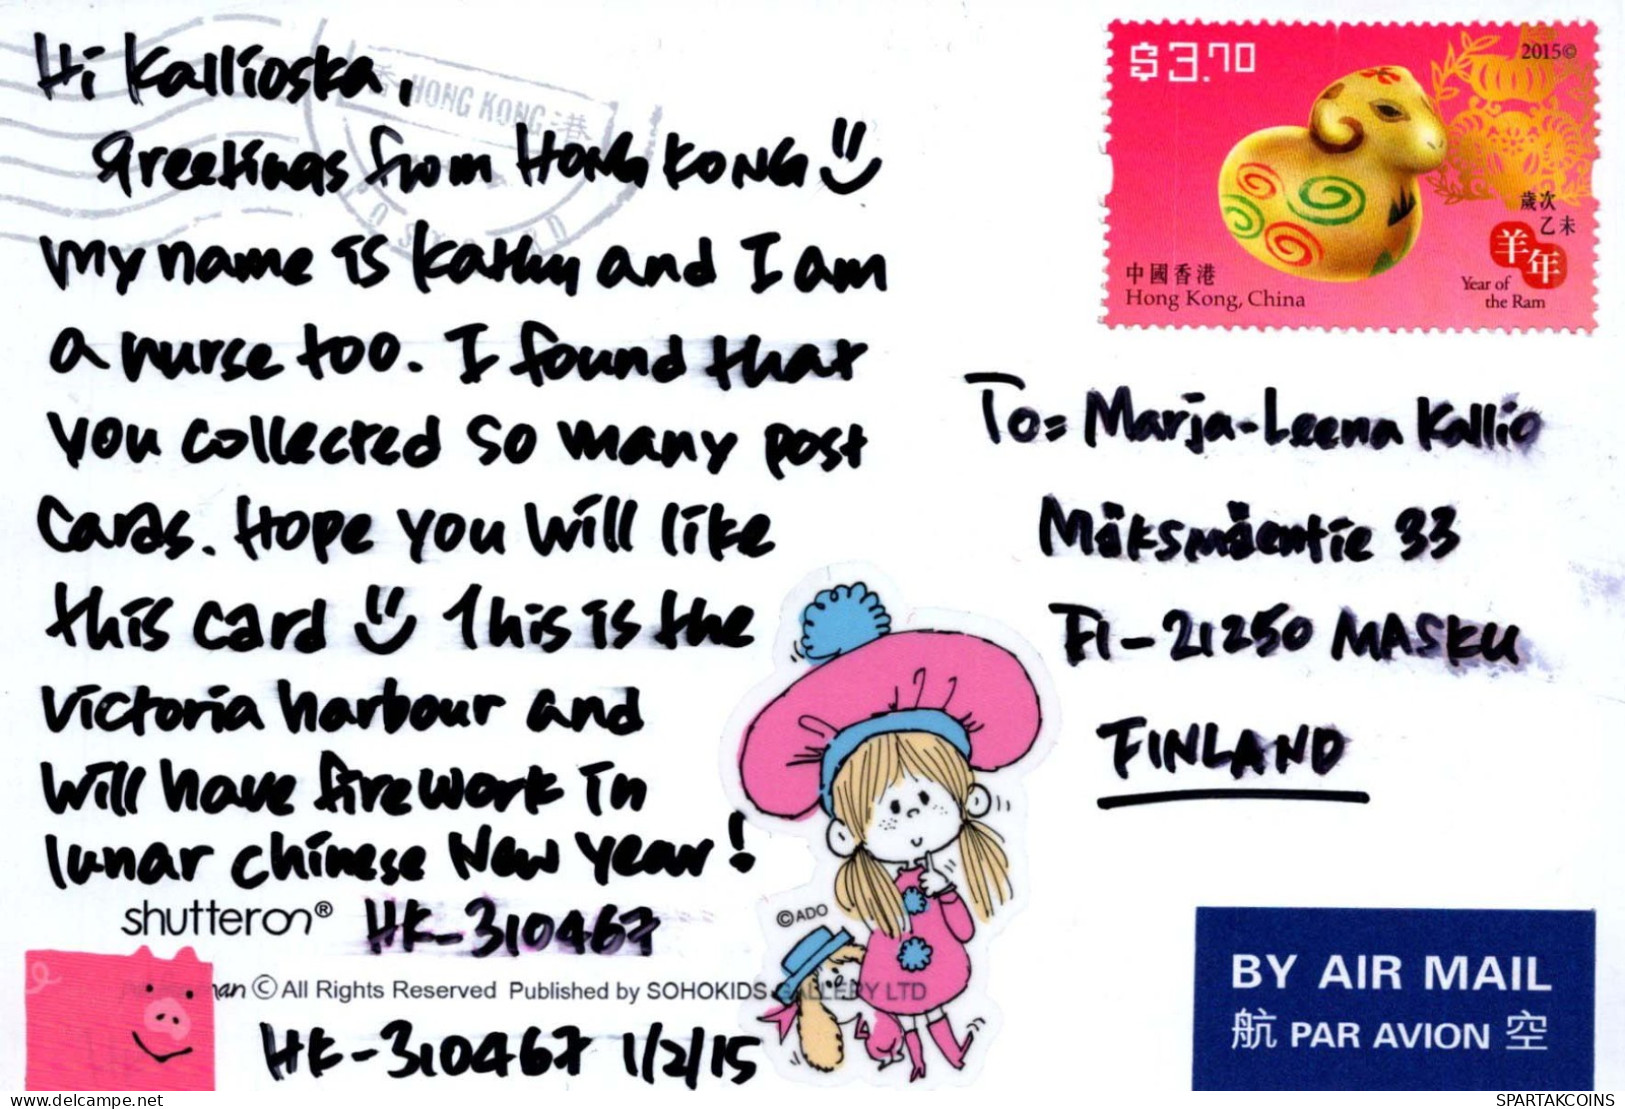 Hi Kallioska,
Greetings from HONG KONG
My name is Kathy and I am
a nurse too. I found that
you collected so many post
cards. Hope you will like
this card This is the
Victoria harbour and
will have firework in
lunar chinese New Year!
shutteron® HK-310467
an © All Rights Reserved Published by SOHOKIDS GALLERY LTD
HK-310467 1/2/15
香 HONG KONG 港
$3.70
2015©
歲次
乙未
羊年
Year of
the Ram
中國香港
Hong Kong, China
To: Marja-Leena Kallio
Mäksmäentie 33
FI-21250 MASKU
FINLAND
©ADO
BY AIR MAIL
航 PAR AVION 空
https://www.spartakcoins.com/
SPARTAKCOINS